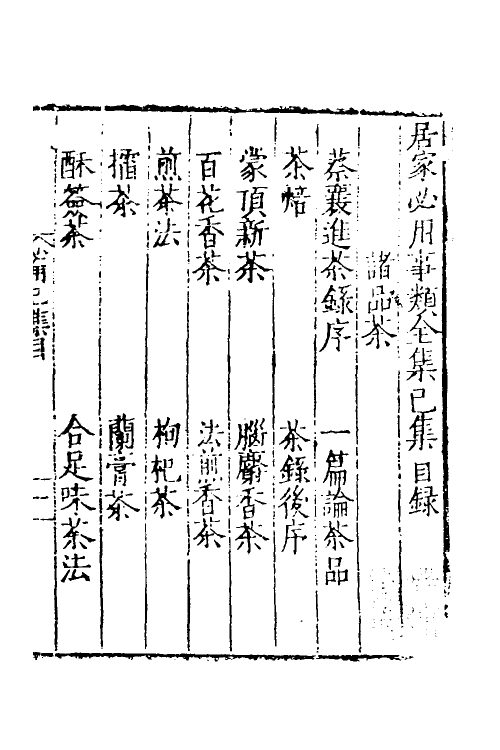 居家必用事類全集己集目録
諸品茶
蔡襄進茶錄序 一篇論茶品
茶焙 茶錄後序
蒙頂新茶 腦麝香茶
百花香茶 法煎香茶
煎茶法 枸杞茶
擂茶 蘭膏茶
酥簽茶 合足味茶法
必用己集目